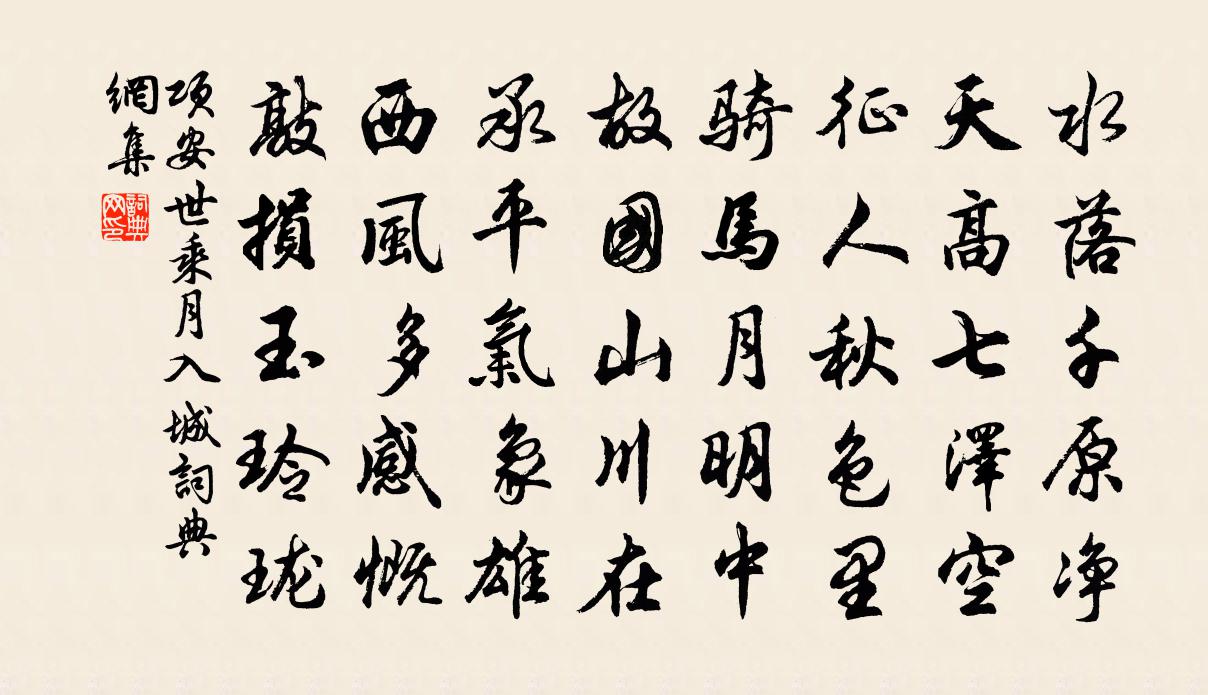 水落千原净
天高七澤空
征人秋色里
骑馬月明中
故國山川在
承平氣象雄
西風多感慨
敲損玉玲珑
项安世乘月入城詞典
網集
詞典网印